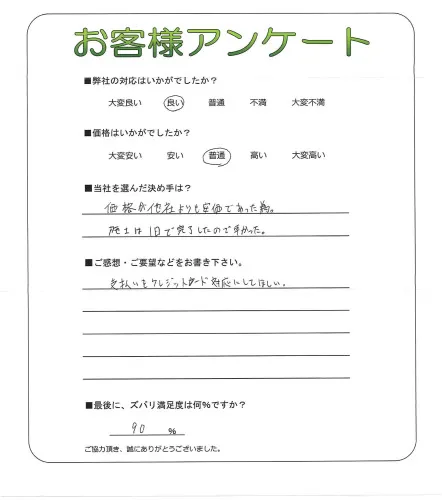 お客様アンケート
■弊社の対応はいかがでしたか？
大変良い 良い 普通 不満 大変不満
■価格はいかがでしたか？
大変安い 安い 普通 高い 大変高い
■当社を選んだ決め手は？
価格が他社よりも安価であった為。
施工は1日で完了したので早かった。
■ご感想・ご要望などをお書き下さい。
支払いもクレジットカード対応にしてほしい。
■最後に、ズバリ満足度は何%ですか？
90 %
ご協力頂き、誠にありがとうございました。